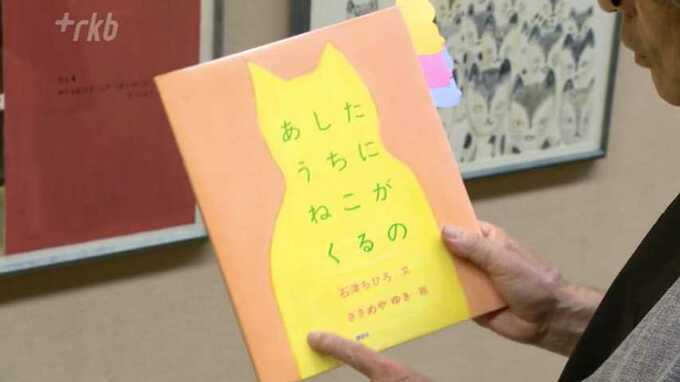 +rkb
あした
うちに
ねこが
くるの
石津ちひろ 文
ささめやゆき 絵
講談社